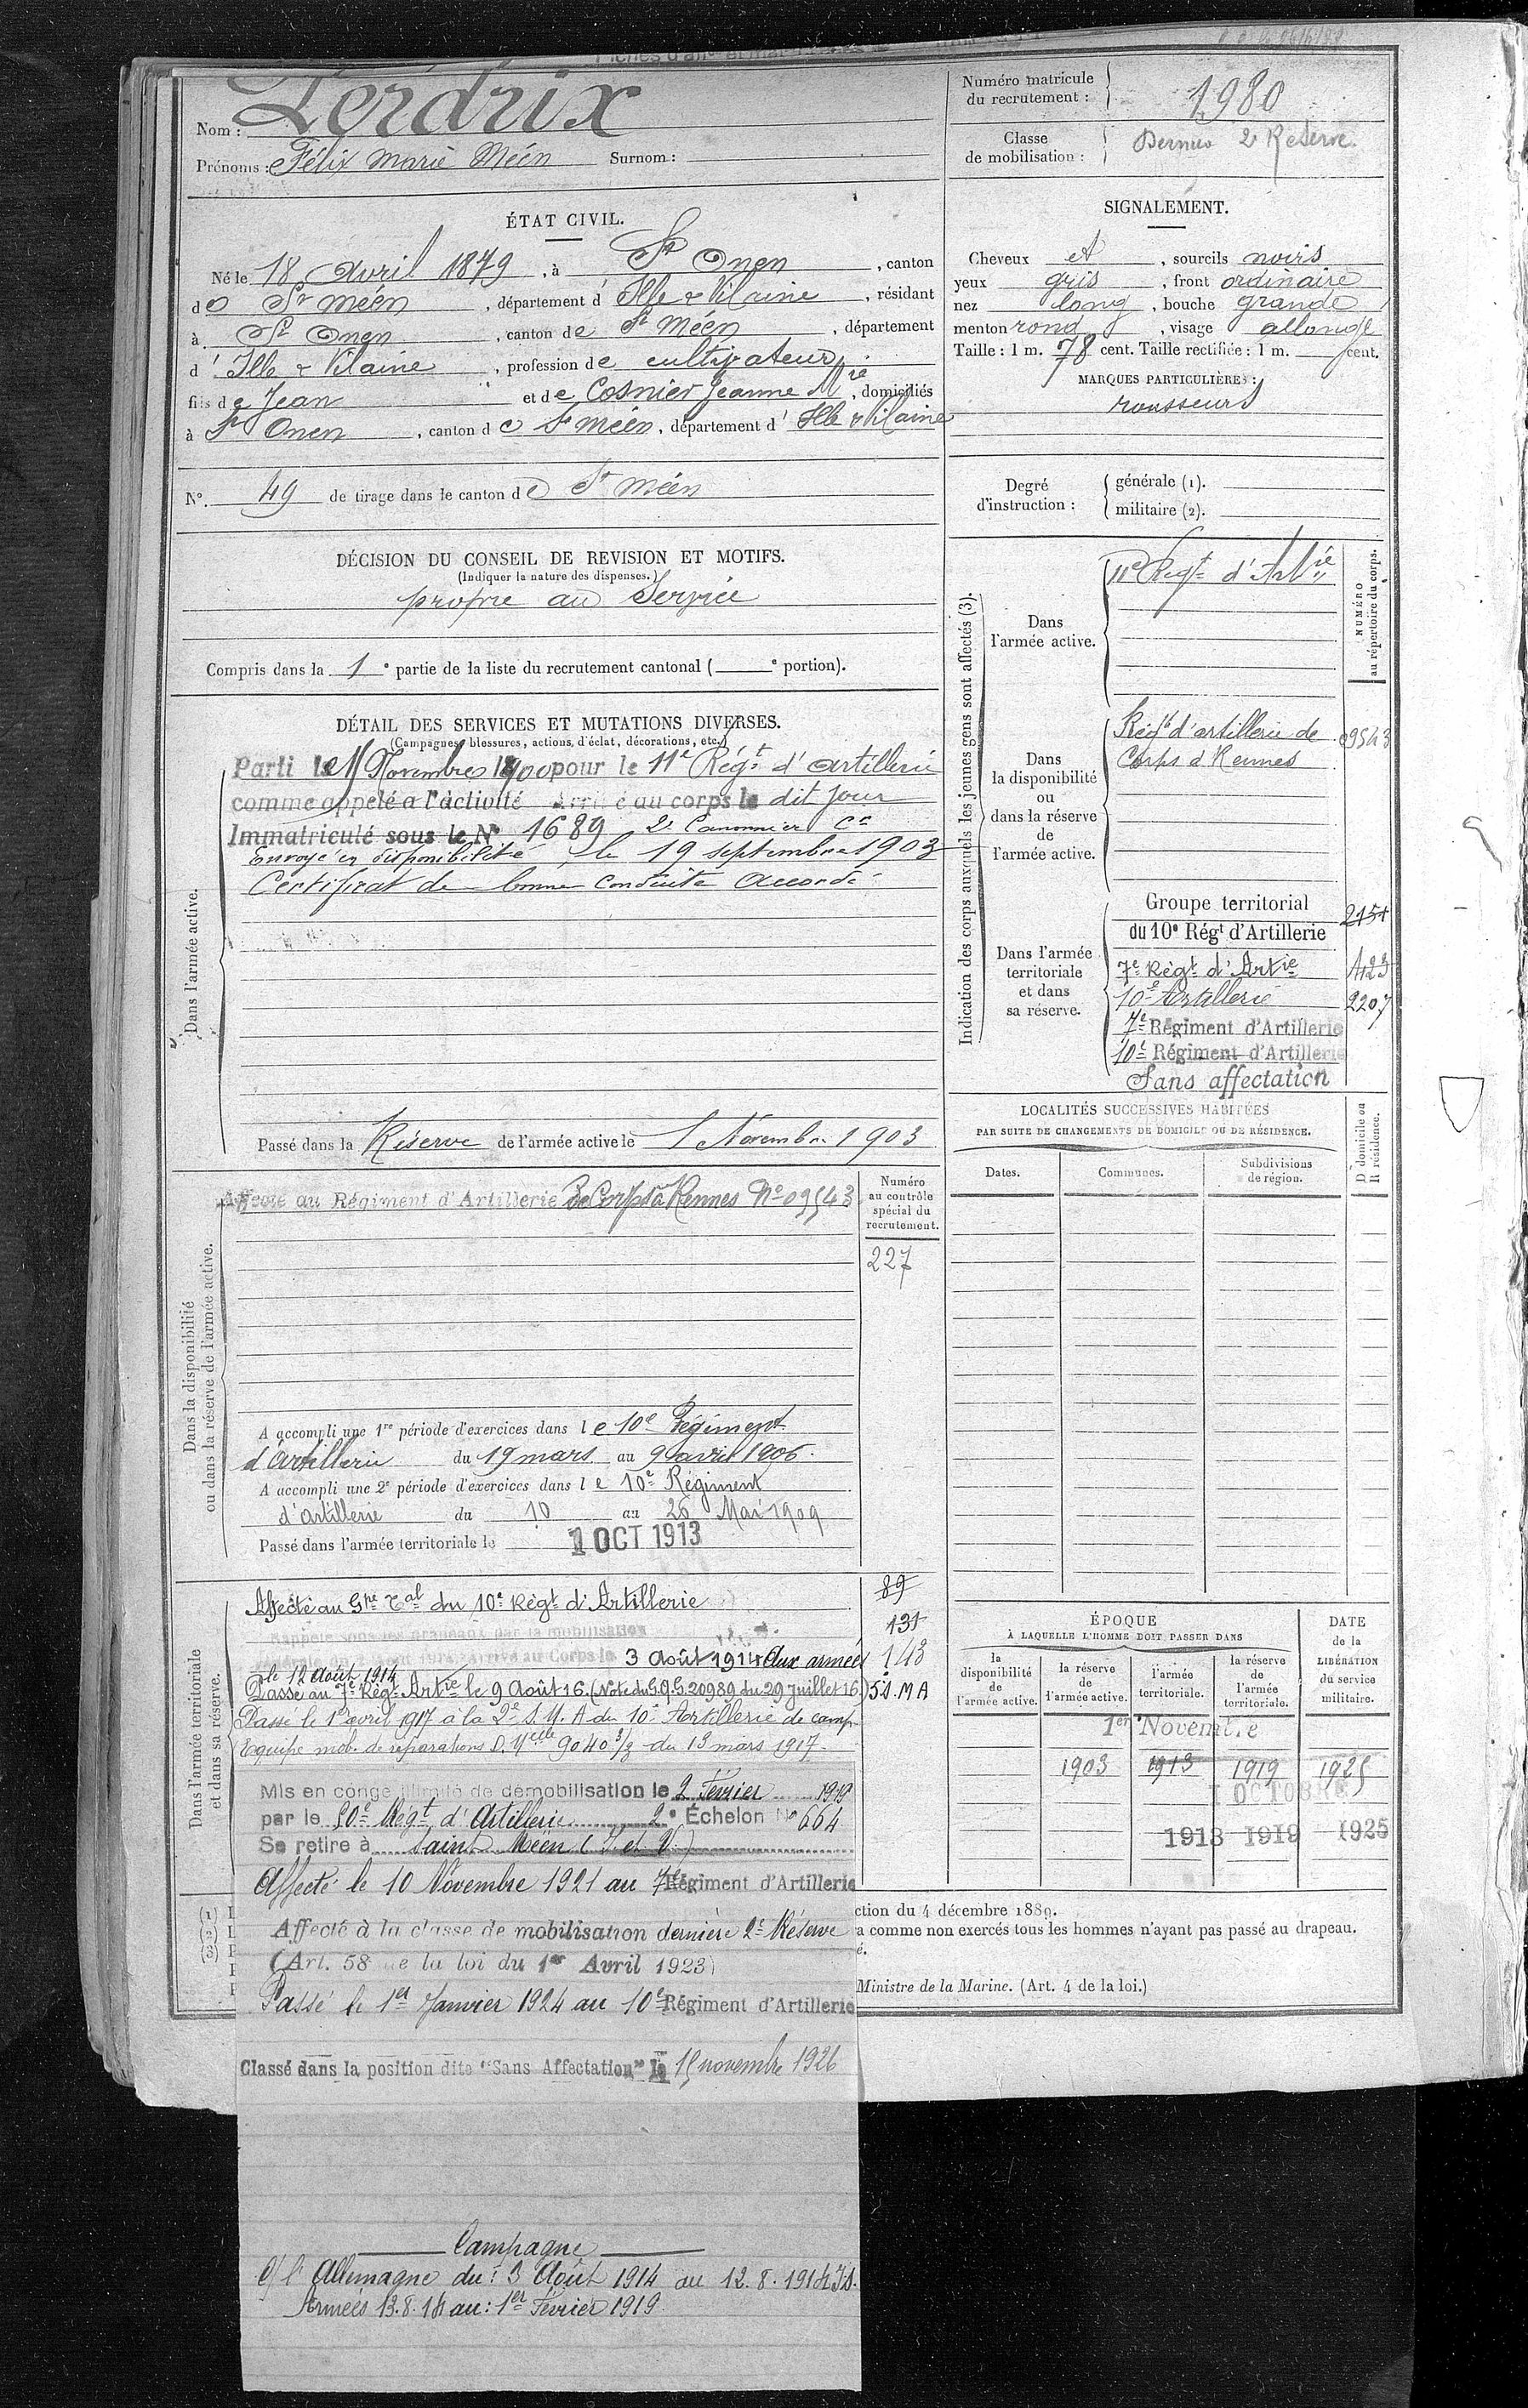 Nom : Perdrix
Prénoms : Félix Marie Méen Surnom :
Numéro matricule du recrutement : 1980
Classe de mobilisation : Dernière 2e Réserve
ÉTAT CIVIL.
Né le 18 Avril 1879, à St Onen, canton
de St Méen, département d'Ille & Vilaine, résidant
à St Onen, canton de St Méen, département
d'Ille & Vilaine, profession de cultivateur,
fils de Jean et de Cosnier Jeanne Mie, domiciliés
à St Onen, canton de St Méen, département d'Ille & Vilaine
N° 49 de tirage dans le canton de St Méen
SIGNALEMENT.
Cheveux et, sourcils noirs
yeux gris, front ordinaire
nez long, bouche grande
menton rond, visage allongé
Taille : 1 m. 78 cent. Taille rectifiée : 1 m. cent.
MARQUES PARTICULIÈRES :
rousseurs
Degré d'instruction :
générale (1).
militaire (2).
DÉCISION DU CONSEIL DE REVISION ET MOTIFS.
(Indiquer la nature des dispenses.)
propre au Service
Compris dans la 1e partie de la liste du recrutement cantonal ( e portion).
DÉTAIL DES SERVICES ET MUTATIONS DIVERSES.
(Campagnes, blessures, actions d'éclat, décorations, etc.)
Dans l'armée active.
Parti le Novembre 1900 pour le 11e Régt d'artillerie
comme appelé à l'activité Arrivé au corps le dit jour
Immatriculé sous le N° 1689 2e Canonnier Ct
Envoyé en disponibilité le 19 septembre 1903
Certificat de bonne conduite accordé
Passé dans la Réserve de l'armée active le 1 Novembre 1903
Dans la disponibilité
ou dans la réserve de l'armée active.
Affecté au Régiment d'Artillerie de Corps à Rennes N° 09543
Numéro
au contrôle
spécial du
recrutement.
227
A accompli une 1re période d'exercices dans le 10e Régiment
d'Artillerie du 19 mars au 9 avril 1906.
A accompli une 2e période d'exercices dans le 10e Régiment
d'artillerie du 10 au 26 Mai 1909
Passé dans l'armée territoriale le 1 OCT 1913
Dans l'armée territoriale
et dans sa réserve.
Affecté au Gpe Tal du 10e Régt d'Artillerie
Rappelé sous les drapeaux par la mobilisation
Arrivé au Corps le 3 Août 1914 Aux armées
le 12 Août 1914
Passé au 7e Régt Artie le 9 Août 16. (Note du G.Q.G. 20989 du 29 Juillet 16.)
Passé le 1er avril 1917 à la 2e S.M.A du 10e Artillerie de camp
Equipe mob. de réparations D. Melle 9040 3/3 du 13 mars 1917.
89
131
143
5 S.M A
Mis en congé illimité de démobilisation le 2 Février 1919
par le 50e Régt d'Artillerie 2e Échelon N° 664
Se retire à Saint Méen (I. et V.)
Affecté le 10 Novembre 1921 au 7e Régiment d'Artillerie
Affecté à la classe de mobilisation dernière 2e Réserve
(Art. 58 de la loi du 1er Avril 1923)
Passé le 1er Janvier 1924 au 10e Régiment d'Artillerie
Classé dans la position dite "Sans Affectation" le 15 novembre 1926
Campagne
C/ l'Allemagne du : 3 Août 1914 au 12.8.1914 I.
Armées 13.8.14 au : 1er Février 1919
Indication des corps auxquels les jeunes gens sont affectés (3).
NUMÉRO
au répertoire du corps.
Dans
l'armée active.
11e Régt d'Artie
Dans
la disponibilité
ou
dans la réserve
de
l'armée active.
Régt d'artillerie de 09543
Corps à Rennes
Dans l'armée
territoriale
et dans
sa réserve.
Groupe territorial
du 10e Régt d'Artillerie 2151
7e Régt d'Artie 1123
10e Artillerie 2207
7e Régiment d'Artillerie
10e Régiment d'Artillerie
Sans affectation
LOCALITÉS SUCCESSIVES HABITÉES
PAR SUITE DE CHANGEMENTS DE DOMICILE OU DE RÉSIDENCE.
Dates. Communes. Subdivisions de région.
D domicile ou
R résidence.
ÉPOQUE
À LAQUELLE L'HOMME DOIT PASSER DANS
la disponibilité de l'armée active.
la réserve de l'armée active.
l'armée territoriale.
la réserve de l'armée territoriale.
DATE de la LIBÉRATION du service militaire.
1er Novembre
1903 1913 1919 1925
1 OCTOBRE
1913 1919 1925
ction du 4 décembre 1889.
a comme non exercés tous les hommes n'ayant pas passé au drapeau.
é.
Ministre de la Marine. (Art. 4 de la loi.)